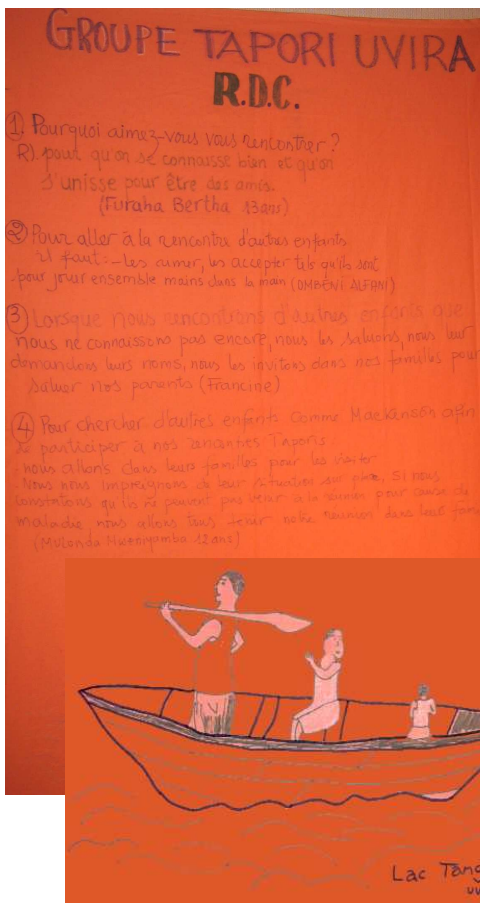 GROUPE TAPORI UVIRA
R.D.C.
1. Pourquoi aimez-vous vous rencontrer ?
R). pour qu'on se connaisse bien et qu'on
s'unisse pour être des amis.
(Furaha Bertha 13 ans)
2 Pour aller à la rencontre d'autres enfants
il faut : - Les aimer, les accepter tels qu'ils sont
pour jouer ensemble mains dans la main (OMBENI ALFANI)
3 Lorsque nous rencontrons d'autres enfants que
nous ne connaissons pas encore, nous les saluons, nous leur
demandons leurs noms, nous les invitons dans nos familles pour
saluer nos parents (Francine)
4 Pour chercher d'autres enfants comme afin
de participer à nos Taporis
- nous allons dans leurs familles pour les visiter
- Nous nous imprégnons de leur situation sur place, si nous
constatons qu'ils ne peuvent pas venir à la réunion pour cause de
maladie nous allons tous tenir notre réunion dans leur
(Mulonda 12 ans)
Lac Tang